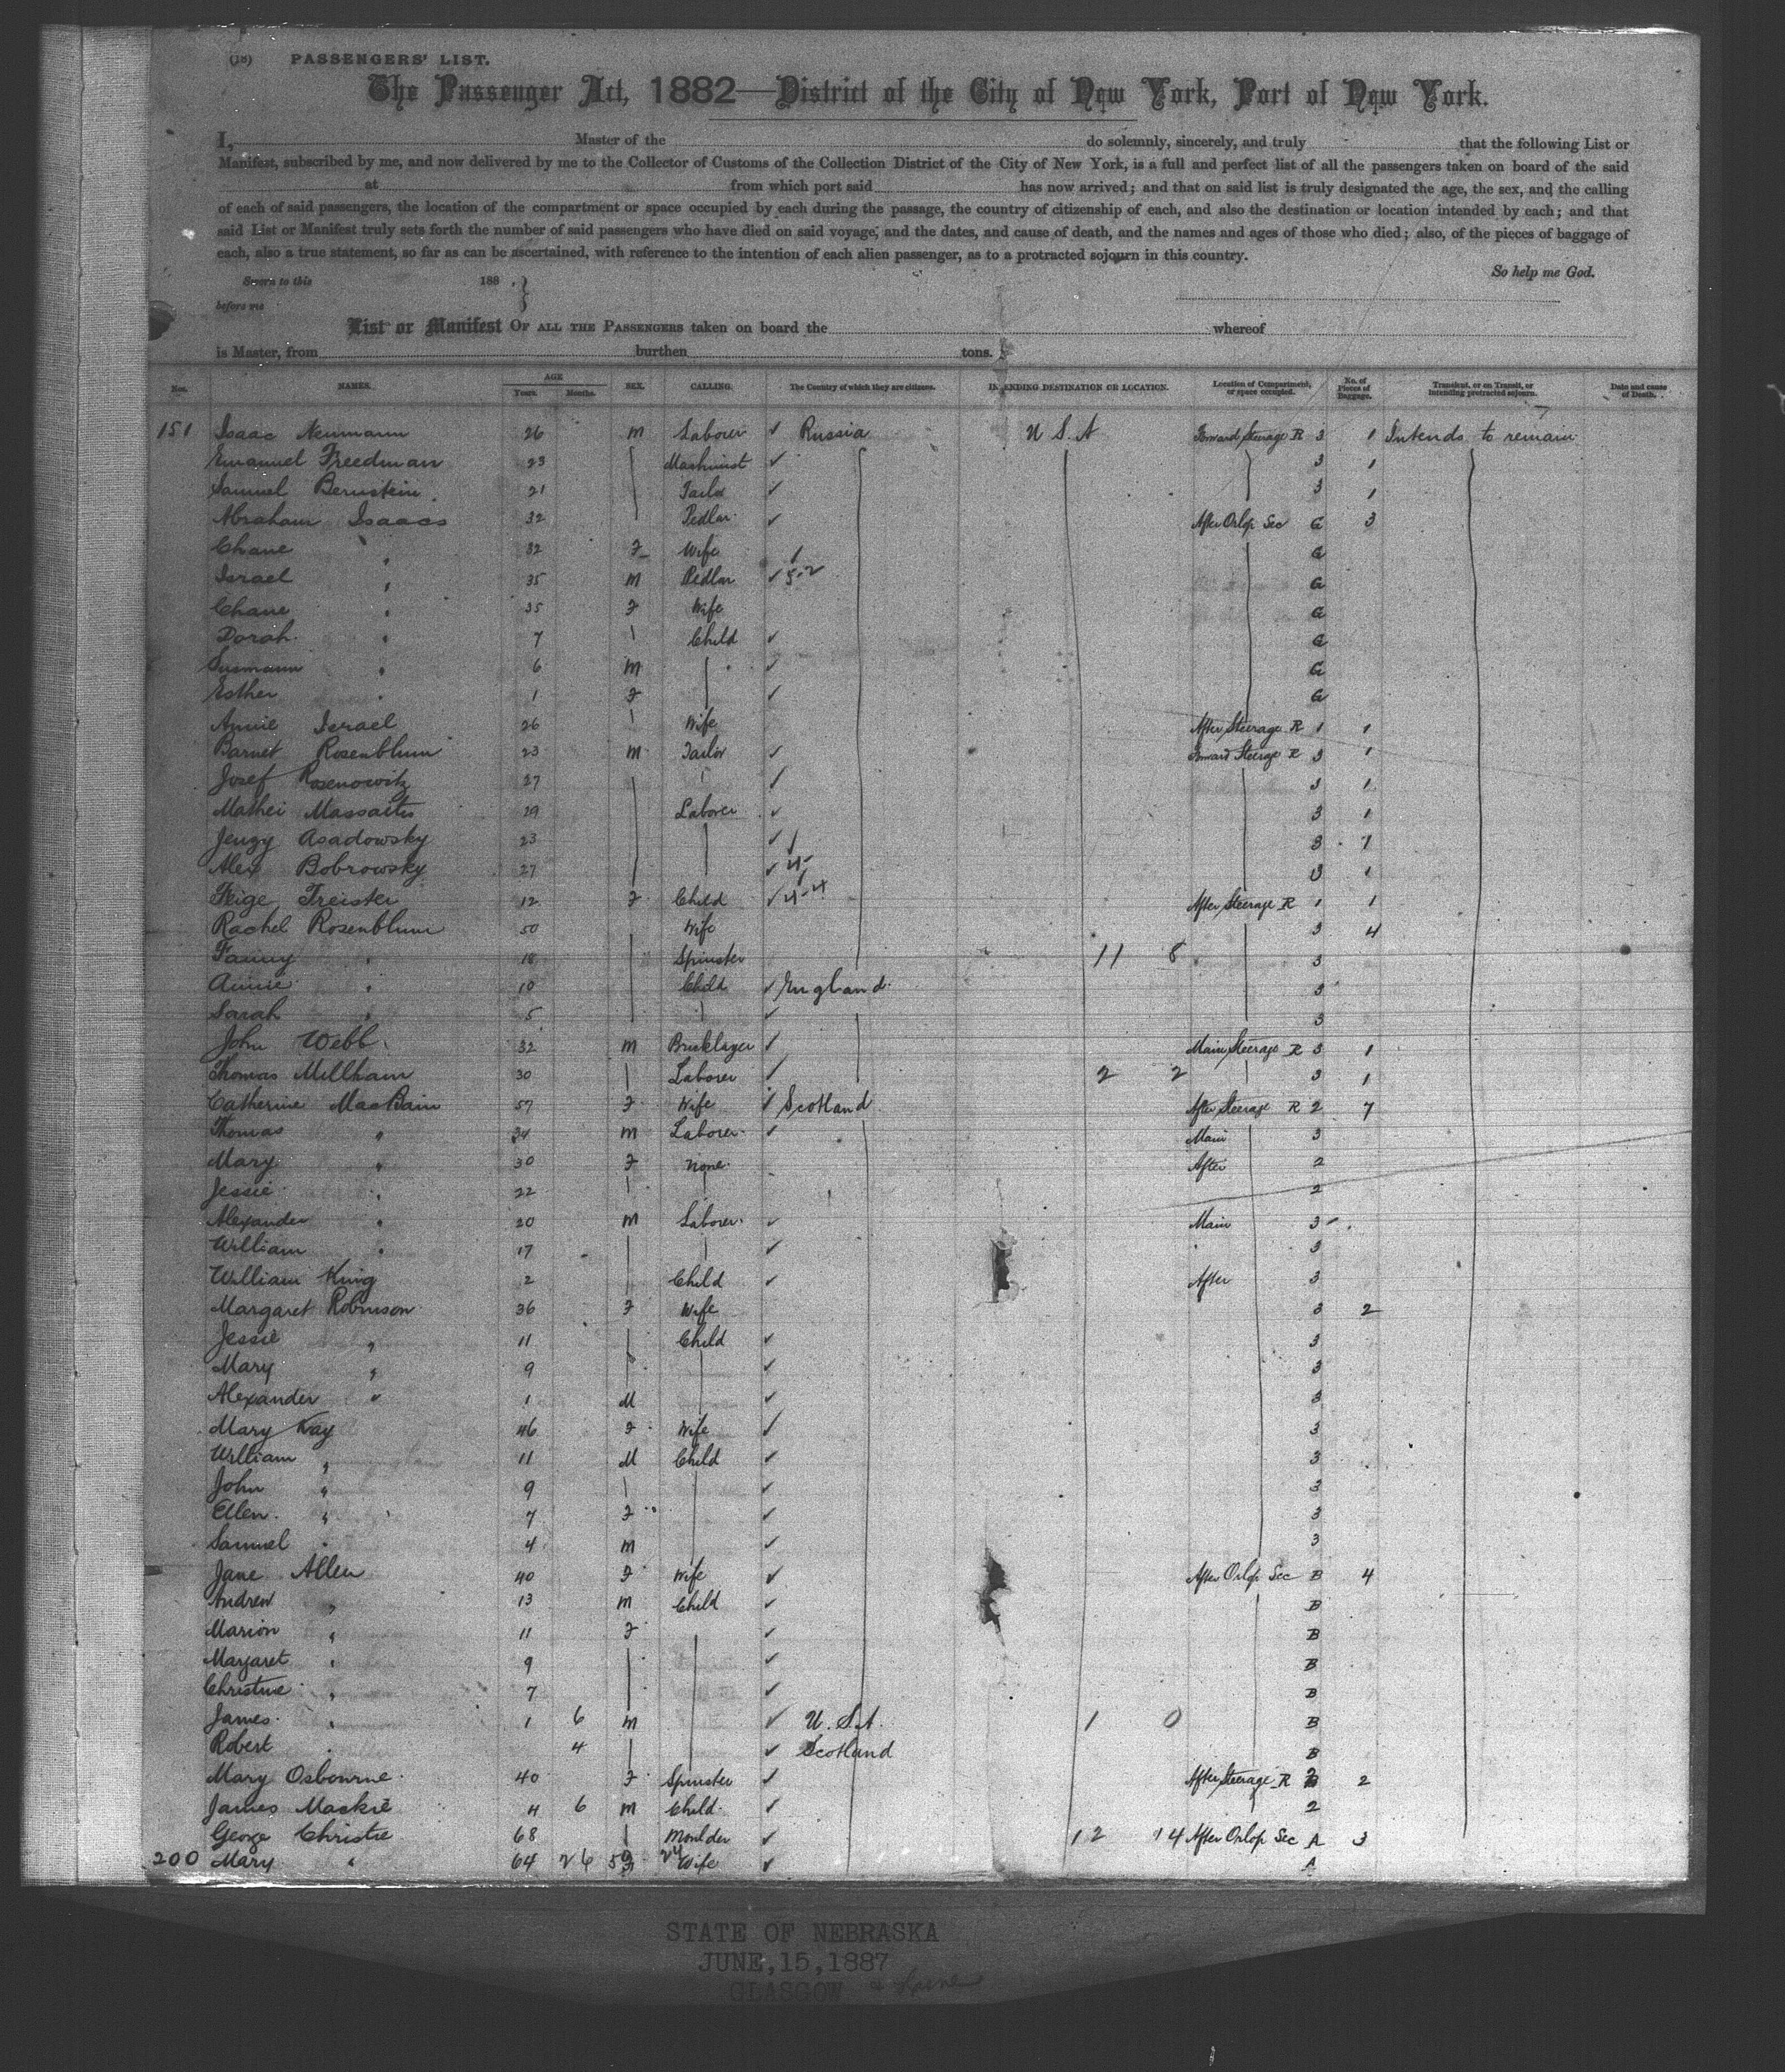 (18) PASSENGERS' LIST.
The Passenger Act, 1882—District of the City of New York, Port of New York.
I, Master of the do solemnly, sincerely, and truly that the following List or
Manifest, subscribed by me, and now delivered by me to the Collector of Customs of the Collection District of the City of New York, is a full and perfect list of all the passengers taken on board of the said
at from which port said has now arrived; and that on said list is truly designated the age, the sex, and the calling
of each of said passengers, the location of the compartment or space occupied by each during the passage, the country of citizenship of each, and also the destination or location intended by each; and that
said List or Manifest truly sets forth the number of said passengers who have died on said voyage, and the dates, and cause of death, and the names and ages of those who died; also, of the pieces of baggage of
each, also a true statement, so far as can be ascertained, with reference to the intention of each alien passenger, as to a protracted sojourn in this country.
So help me God.
Sworn to this 188 . }
before me
List or Manifest OF ALL THE PASSENGERS taken on board the whereof
is Master, from burthen tons.
Nos. NAMES. AGE Years. Months. SEX. CALLING. The Country of which they are citizens. INTENDING DESTINATION OR LOCATION. Location of Compartment, of space occupied. No. of Pieces of Baggage. Transient, or on Transit, or intending protracted sojourn. Date and cause of Death.
151 Isaac Neumann 26 M Laborer ✓ Russia U S A Forward Steerage R 3 1 Intends to remain
Emanuel Freedman 23 Mashinist ✓ 3 1
Samuel Bernstein 21 Tailor ✓ 3 1
Abraham Isaacs 32 Pedlar ✓ After Orlop Sec G 3
Chane " 32 F Wife G
Israel " 35 M Pedlar ✓ 5-2 G
Chane " 35 F Wife G
Dorah " 7 Child ✓ G
Susmann " 6 M ✓ G
Esther " 1 F ✓ G
Annie Israel 26 Wife After Steerage R 1 1
Barnet Rosenblum 23 M Tailor ✓ Forward Steerage R 3 1
Josef Rosenowitz 27 ✓ 3 1
Mathei Massaitis 29 Laborer ✓ 3 1
Jeugy Asadowsky 23 ✓ 3 1
Alex Bobrowsky 27 ✓ 3 1
Feige Treister 12 F Child ✓ 4-4 After Steerage R 1 1
Rachel Rosenblum 50 Wife 3 4
Fanny " 18 Spinster 11 8 3
Annie " 10 Child ✓ England 3
Sarah " 5 ✓ 3
John Webb 32 M Bricklayer ✓ Main Steerage R 3 1
Thomas Millham 30 Laborer ✓ 2 2 3 1
Catherine MacBain 57 F Wife ✓ Scotland After Steerage R 2 7
Thomas " 34 M Laborer ✓ Main 3
Mary " 30 F None After 2
Jessie " 22 2
Alexander " 20 M Laborer ✓ Main 3
William " 17 ✓ 3
William King 2 Child ✓ After 3
Margaret Robinson 36 F Wife 3 2
Jessie " 11 Child ✓ 3
Mary " 9 ✓ 3
Alexander " 1 M ✓ 3
Mary Kay 46 F Wife ✓ 3
William " 11 M Child ✓ 3
John " 9 ✓ 3
Ellen " 7 F ✓ 3
Samuel " 4 M ✓ 3
Jane Allen 40 F Wife ✓ After Orlop Sec B 4
Andrew " 13 M Child ✓ B
Marion " 11 F ✓ B
Margaret " 9 ✓ B
Christine " 7 ✓ B
James " 1 6 M ✓ U. S. A. 1 0 B
Robert " 4 ✓ Scotland B
Mary Osbourne 40 F Spinster ✓ After Steerage R 2 2
James Mackie 4 6 M Child ✓ 2
George Christie 68 Moulder ✓ 12 14 After Orlop Sec A 3
200 Mary " 64 26 50 F 24 Wife ✓ A
STATE OF NEBRASKA
JUNE,15,1887
GLASGOW & Larne